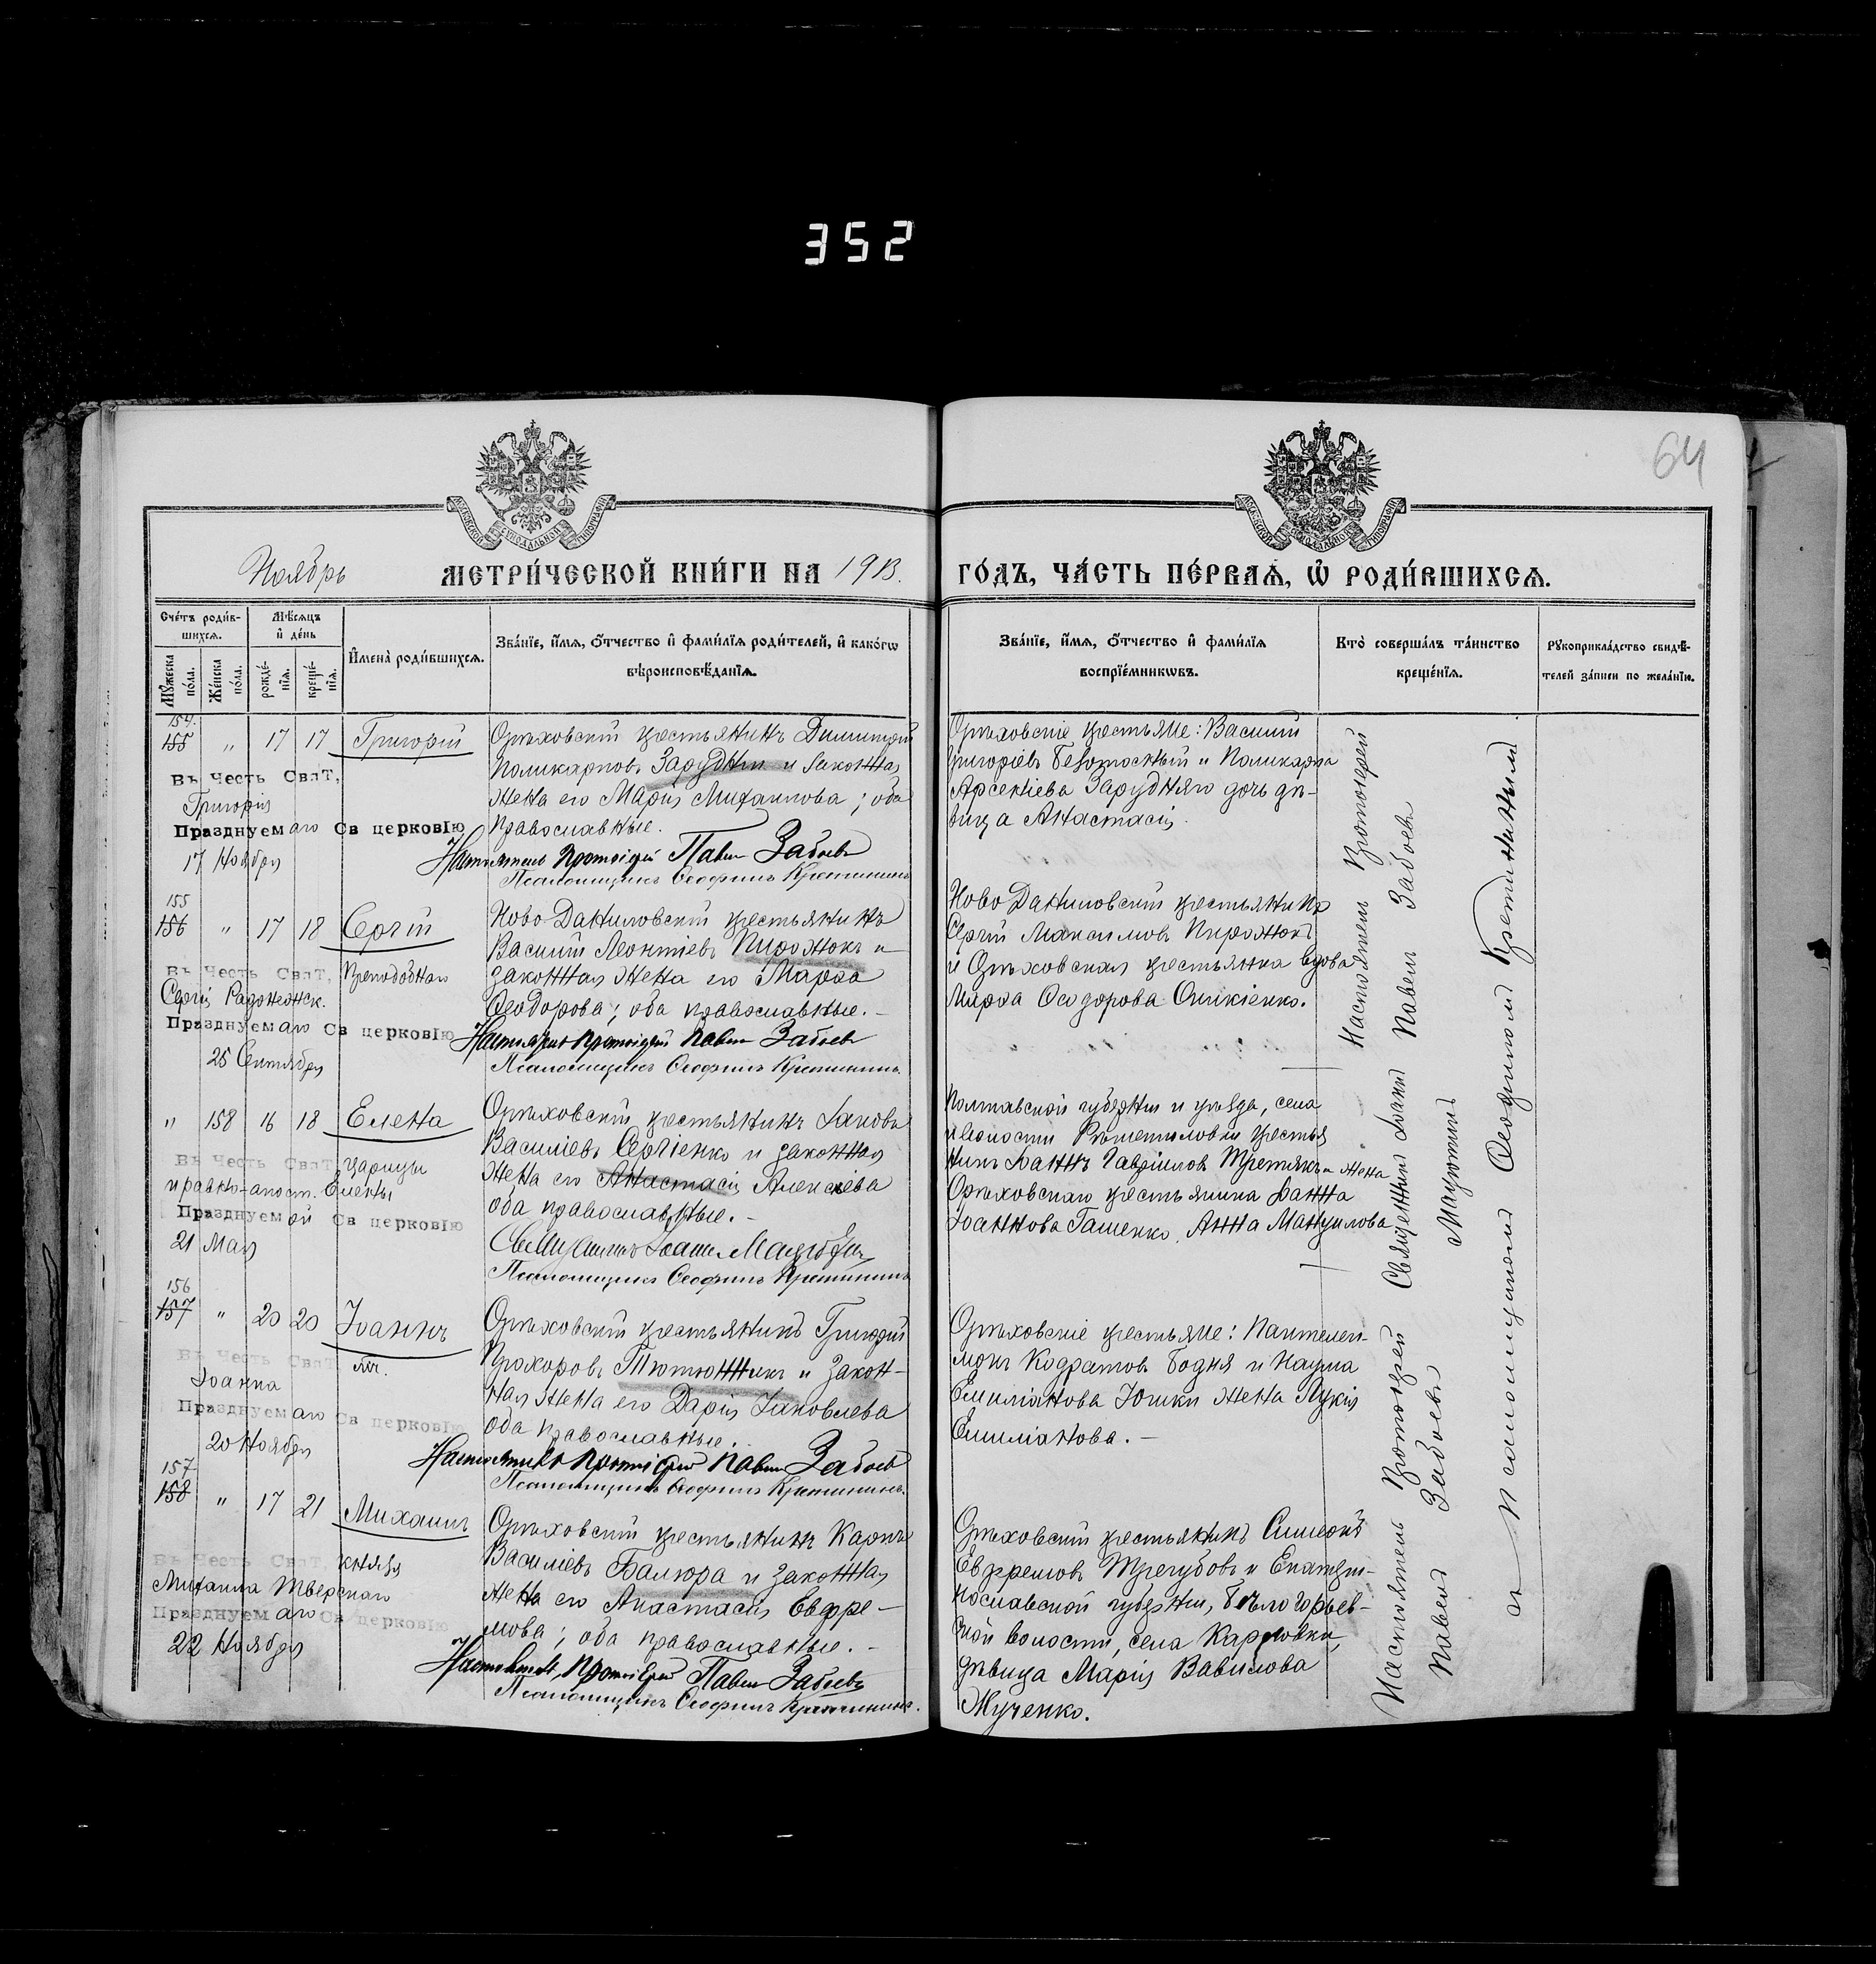 352
64
Ноябрь
МЕТРИ́ЧЕСКОЙ КНИ́ГИ НА 1913.
ГО́ДЪ, ЧА́СТЬ ПЕ́РВАѦ, Ѡ҆ РОДИ́ВШИХСѦ.
Сче́тъ роди́в-
шихсѧ.
Мѣ́сѧцъ
и҆ де́нь
Мꙋ́жеска
по́ла.
Же́нска
по́ла.
рожде́-
нїѧ.
креще́-
нїѧ.
И҆мена̀ роди́вшихсѧ.
Зва́нїе, и҆́мѧ, ѻ҆́тчество и҆ фами́лїѧ роди́телей, и҆ како́гѡ
вѣроисповѣ́данїѧ.
Зва́нїе, и҆́мѧ, ѻ҆́тчество и҆ фами́лїѧ
воспрїе́мникѡвъ.
Кто̀ соверша́лъ та́инство
креще́нїѧ.
Рꙋкоприкла́дство свидѣ́-
телей за́писи по жела́нїю.
154.
155 " 17 17 Григорій
Въ Честь Свят,
Григорія
Празднуемаго Св церковію
17 Ноября
Орѣховскій крестьянинъ Димитрій
Поликарповъ Зарудній и законная
жена его Марія Михаилова; оба
православные.
Настоятель Протоіерей Павелъ Забоевъ
Псаломщикъ Ѳеофилъ Кретининъ
Орѣховскіе крестьяне: Василій
Григоріевъ Безотосный и Поликарпа
Арсеніева Зарудняго дочь дѣ-
вица Анастасія.
155
156 " 17 18 Сергій
Въ Честь Свят, Преподобнаго
Сергія Радонежск.
Празднуемаго Св церковію
25 Сентября
Ново Даниловскій крестьянинъ
Василій Леонтіевъ Пирожокъ и
законная жена его Марѳа
Ѳеодорова; оба православные. -
Настоятель Протоіерей Павелъ Забоевъ
Псаломщикъ Ѳеофилъ Кретининъ.
Ново Даниловскій крестьянинъ
Сергій Максимовъ Пирожокъ
и Орѣховская крестьянка вдова
Марѳа Ѳеодорова
" 158 16 18 Елена
Въ Честь Свят, царицы
и равно-апост. Елены
Празднуемой Св церковію
21 Мая
Орѣховскій крестьянинъ Іаковъ
Василіевъ Сергіенко и законная
жена его Анастасія Алексѣева
оба православные. -
Священникъ Іоаннъ
Псаломщикъ Ѳеофилъ Кретининъ
Полтавской губерніи и уѣзда, села
и волости Рѣшетиловки крестья
нинъ Іоаннъ Гавріиловъ Третякъ и жена
Орѣховскаго крестьянина Іоанна
Іоаннова Гашенко, Анна Мануилова
156
157 " 20 20 Іоаннъ
Въ Честь Свят, мч.
Іоанна
Празднуемаго Св церковію
20 Ноября
Орѣховскій крестьянинъ Григорій
Прохоровъ Тютюнникъ и закон-
ная жена его Дарія Іаковлева
оба православные.
Настоятель Протоіерей Павелъ Забоевъ
Псаломщикъ Ѳеофилъ Кретининъ.
Орѣховскіе крестьяне: Пантелеи-
монъ Кодратовъ Бодня и Наума
Емиліанова Юшки жена Лукія
Емиліанова. -
157
158 " 17 21 Михаилъ
Въ Честь Свят, князя
Михаила Тверскаго
Празднуемаго Св церковію
22 Ноября
Орѣховскій крестьянинъ Карпъ
Василіевъ Балюра и законная
жена его Анастасія Евфре-
мова; оба православные. -
Настоятель, Протоіерей Павелъ Забоевъ
Псаломщикъ Ѳеофилъ Кретининъ.
Орѣховскій крестьянинъ Симеонъ
Евфремовъ Трегубовъ и Екатери-
нославской губерніи, Бѣлогорьев-
ской волости, села Карловки,
дѣвица Марія Вавилова
Жученко.
Настоятель Протоіерей
Павелъ Забоевъ
Священникъ Іоаннъ
Настоятель Протоіерей
Павелъ Забоевъ
съ Псаломщикомъ Ѳеофиломъ Кретининымъ